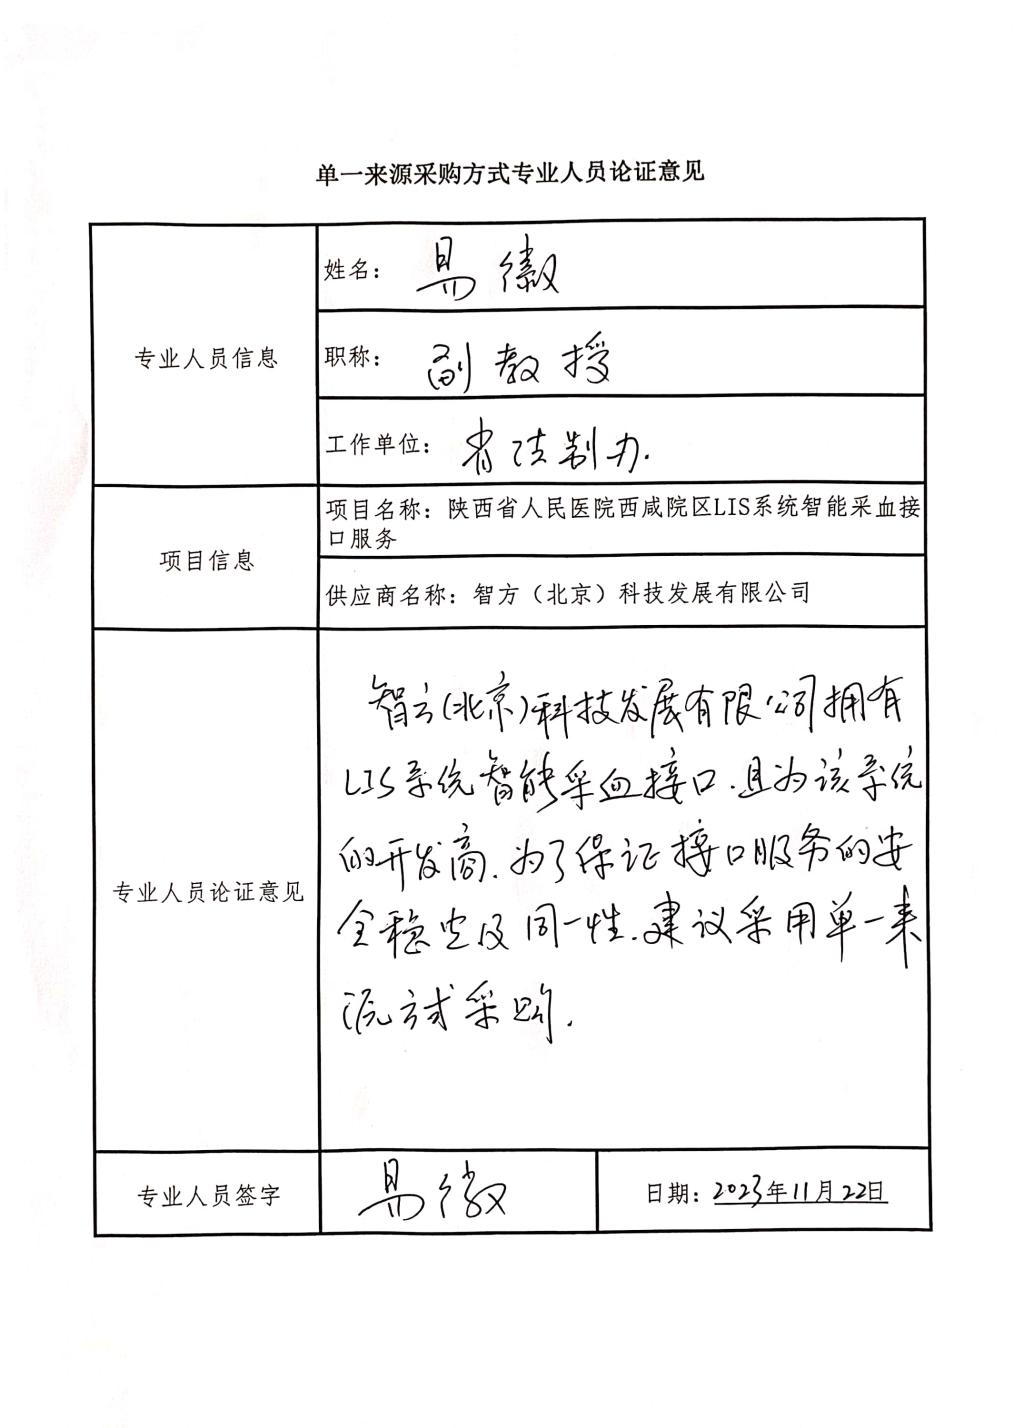 单一来源采购方式专业人员论证意见
专业人员信息
姓名：易徽
职称：副教授
工作单位：省法制办.
项目信息
项目名称：陕西省人民医院西咸院区LIS系统智能采血接
口服务
供应商名称：智方（北京）科技发展有限公司
专业人员论证意见
智方(北京)科技发展有限公司拥有
LIS系统智能采血接口.且为该系统
的开发商.为了保证接口服务的安
全稳定及同一性.建议采用单一来
源方式采购.
专业人员签字
易徽
日期：2023年11月22日